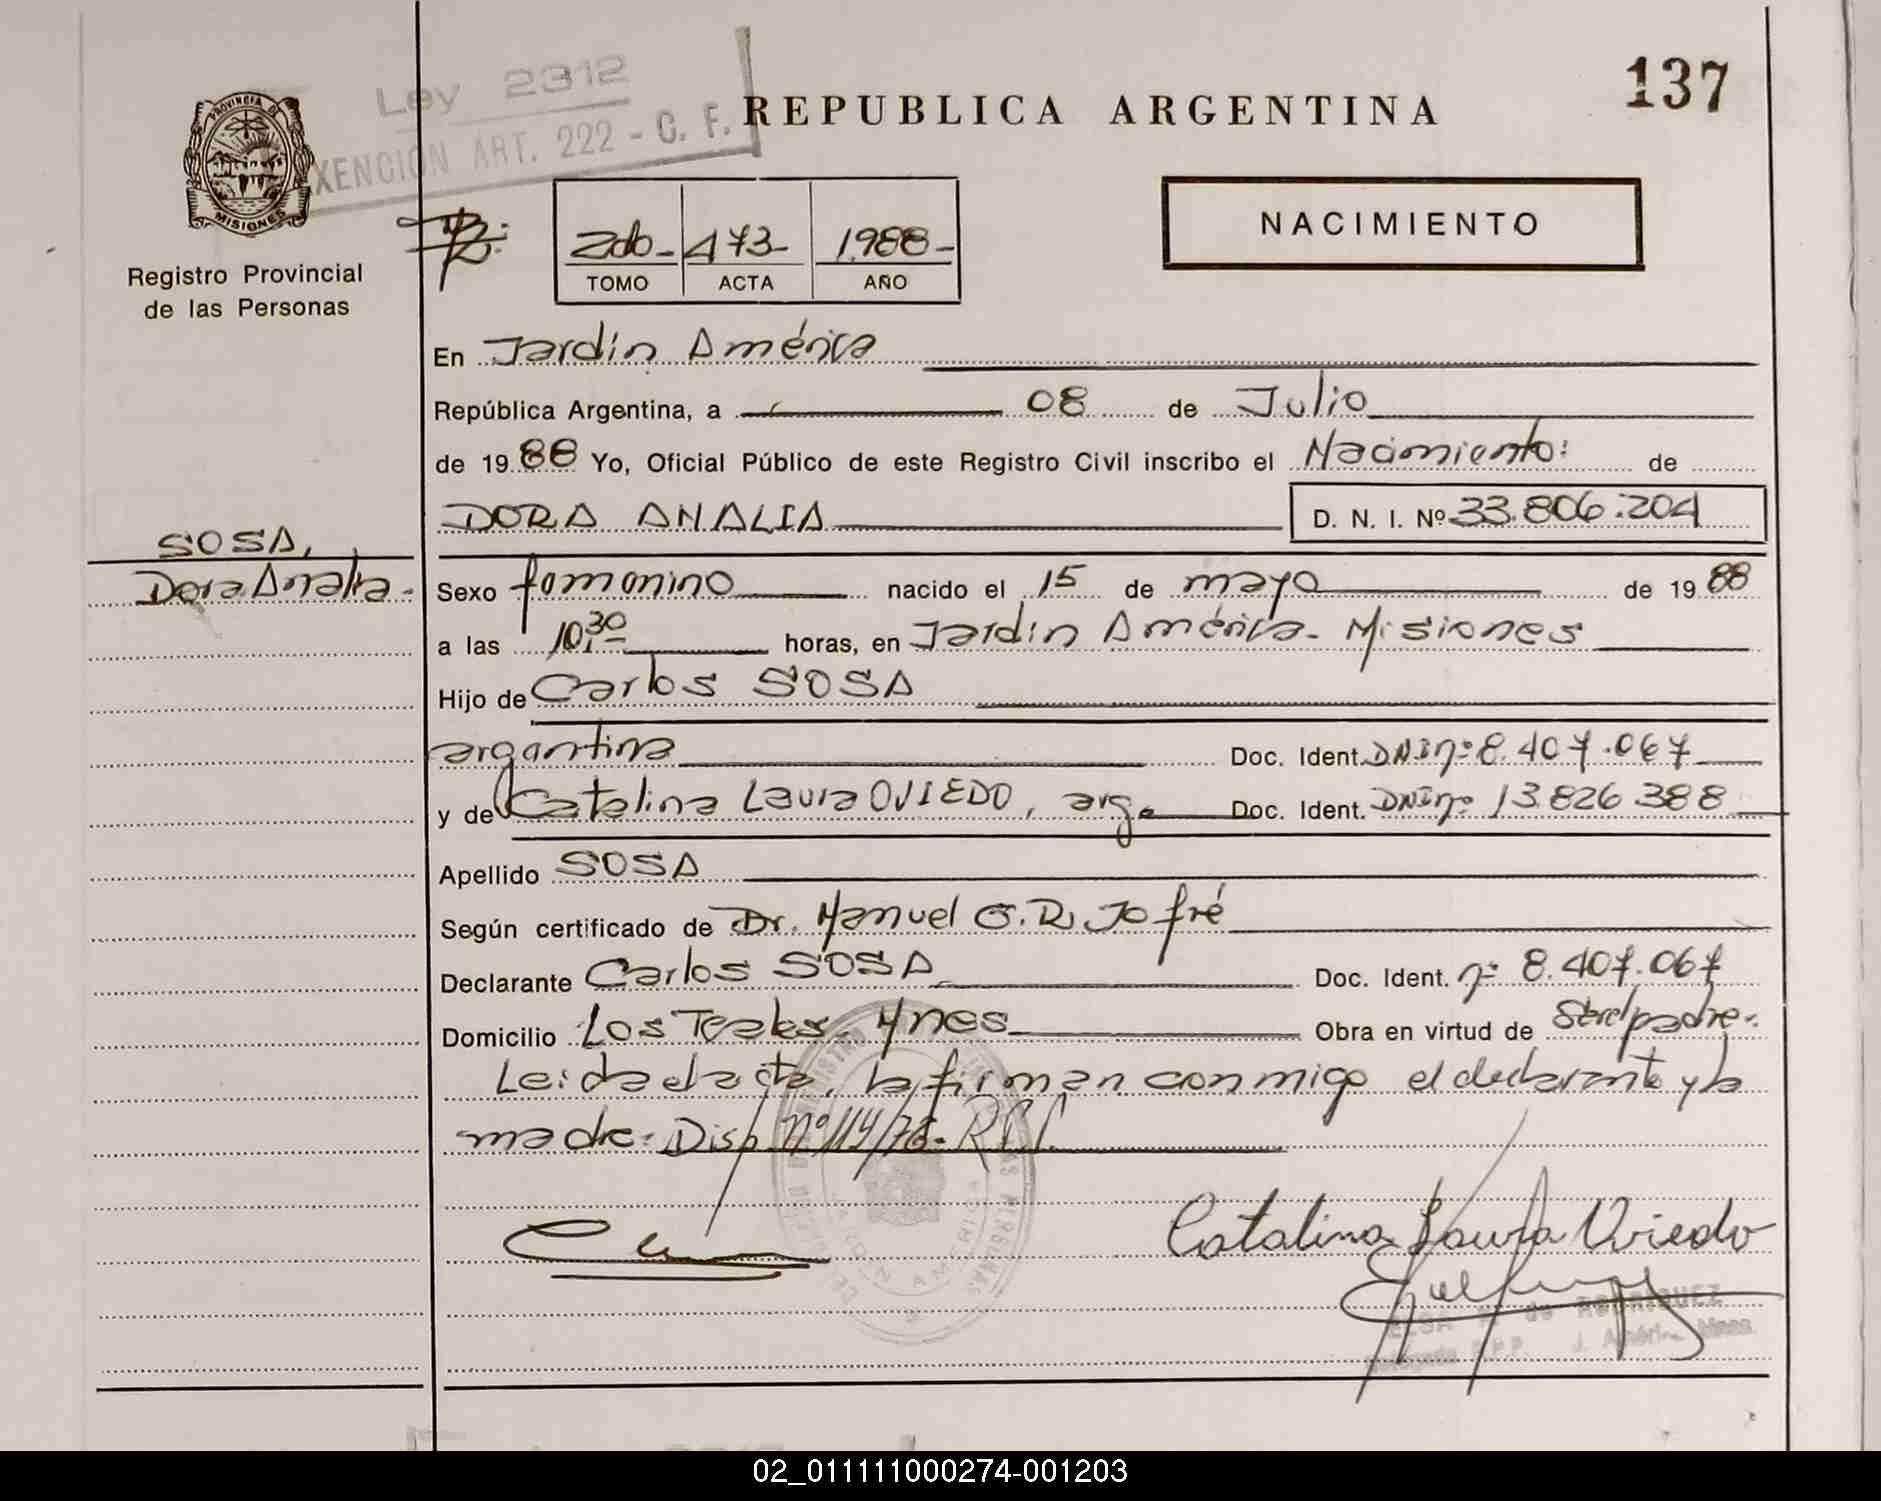 Ley 2312
XENCION ART. 222 - C. F.
REPUBLICA ARGENTINA
137
PROVINCIA DE
MISIONES
Registro Provincial
de las Personas
2do - 473 - 1.988 -
TOMO ACTA AÑO
NACIMIENTO
En Jardín América
República Argentina, a 08 de Julio
de 1988 Yo, Oficial Público de este Registro Civil inscribo el Nacimiento: de
DORA ANALIA D. N. I. Nº 33.806.204
SOSA,
Dora Analia -
Sexo femenino nacido el 15 de mayo de 1988
a las 10,30 horas, en Jardín América - Misiones
Hijo de Carlos SOSA
argentina Doc. Ident. DNI nº 8.407.067
y de Catalina Laura OVIEDO, arg. Doc. Ident. DNI nº 13.826 388
Apellido SOSA
Según certificado de Dr. Manuel G. R. Jofré
Declarante Carlos SOSA Doc. Ident. nº 8.407.067
Domicilio Los Teales - Mnes Obra en virtud de Ser el padre -
Leida el acta, la firman conmigo el declarante y la
madre - Disp. nº 114/78 - R.C.
Catalina Laura Oviedo
ELSA de RODRIGUEZ
J. América Mnes.
02_011111000274-001203